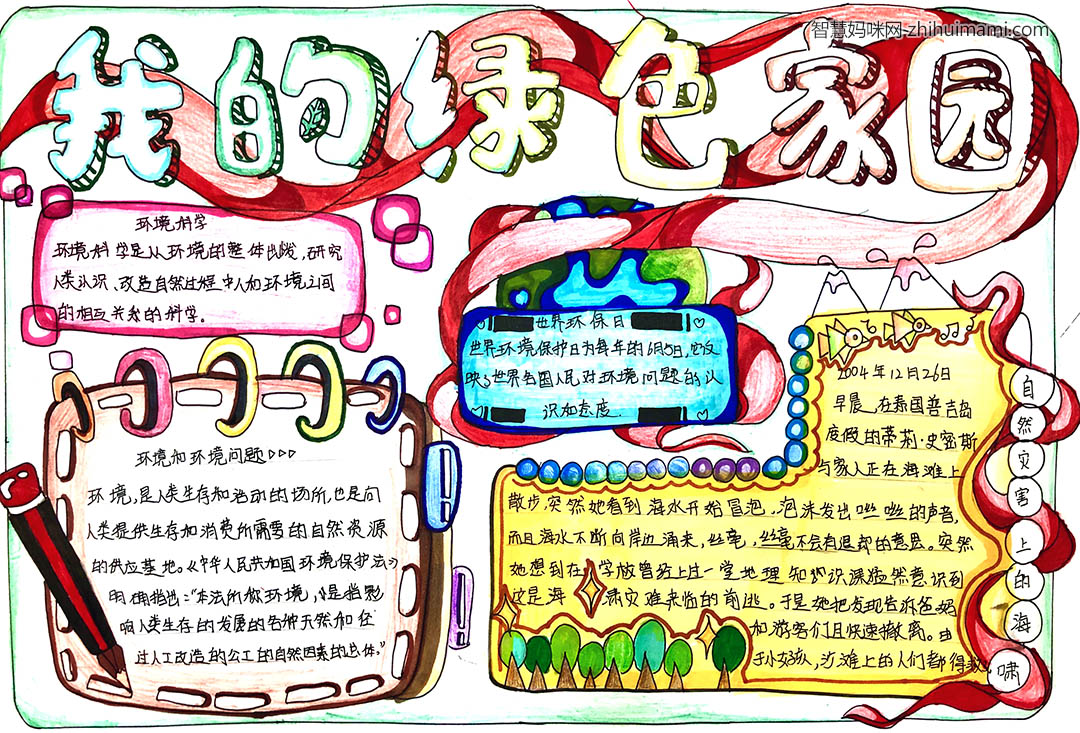 智慧妈咪网-zhihuimami.com
我的绿色家园
环境科学
环境科学是从环境的整体出发,研究
人类认识、改造自然过程中人和环境之间
的相互关系的科学。
世界环保日
世界环境保护日为每年的6月5日,它反
映了世界各国人民对环境问题的认
识和态度.
环境和环境问题>>>
环境,是人类生存和活动的场所,也是向
人类提供生存和消费所需要的自然资源
的供应基地。《中华人民共和国环境保护法》
明确指出:"本法所称环境,是指影
响人类生存的发展的各种天然和经
过人工改造的公工的自然因素的总体."
2004年12月26日
早晨,在泰国普吉岛
度假的蒂莉·史密斯
与家人正在海滩上
散步,突然她看到海水开始冒泡,泡沫发出咝咝的声音,
而且海水不断向岸边涌来,丝毫,丝毫不会有退却的意思。突然
她想到在学校曾经上过一堂地理知识课猛然意识到
这是海啸灾难来临的前兆。于是她把发现告诉爸妈
和游客们且快速撤离。由
于小女孩,沙滩上的人们都得救。
自然灾害上的海啸